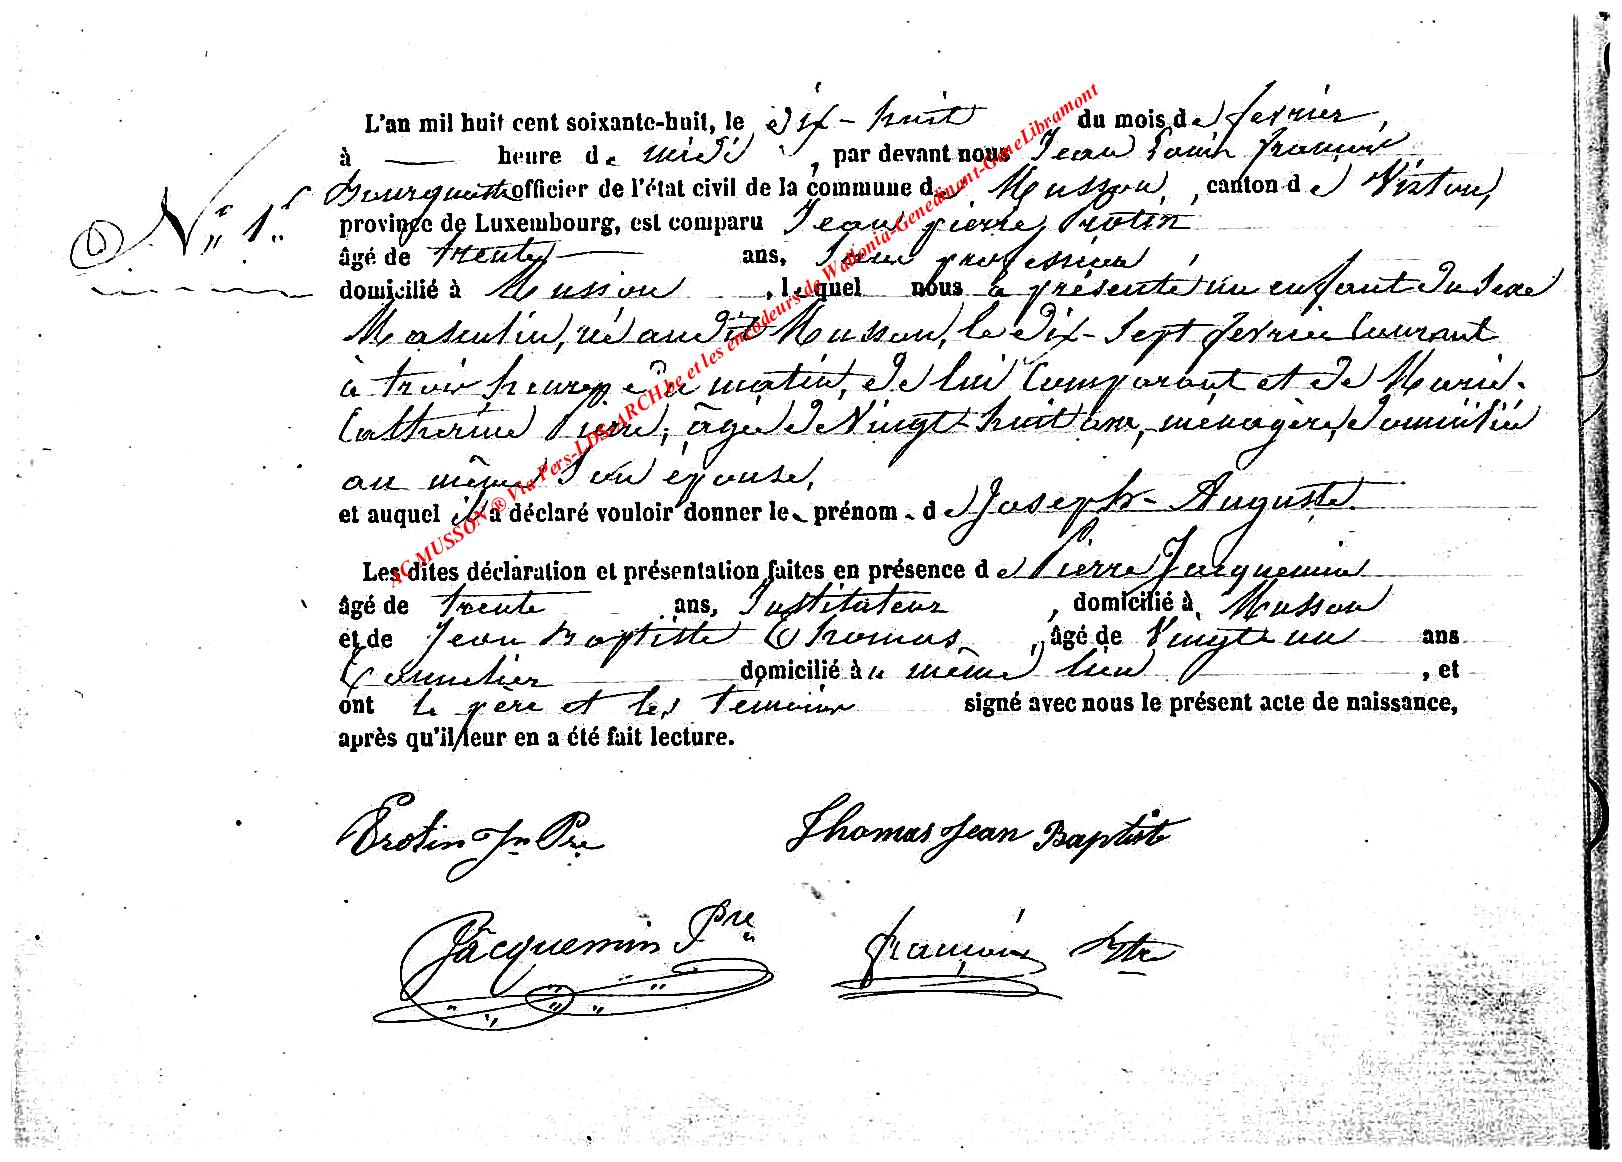 L'an mil huit cent soixante-huit, le dix-huit du mois de février,
à — heure de midi, par devant nous Jean Louis François
officier de l'état civil de la commune de Musson, canton de Virton,
N° 1
province de Luxembourg, est comparu Jean pierre
âgé de trente ans, Sans profession
domicilié à Musson, lequel nous a présenté un enfant du Sexe
Masculin, né audit Musson, le dix-Sept février Courant
à trois heures du matin, de lui Comparant et de Marie-
Catherine, âgée de Vingt-huit ans, ménagère, domiciliée
au même, Son épouse,
et auquel il a déclaré vouloir donner le prénom de Joseph-Auguste.
Les dites déclaration et présentation faites en présence de Pierre Jacquemin
âgé de trente ans, Instituteur, domicilié à Musson
et de Jean Baptiste Thomas, âgé de Vingt un ans
Tonnelier domicilié au même lieu, et
ont le père et les témoins signé avec nous le présent acte de naissance,
après qu'il leur en a été fait lecture.
Jn Pre
Thomas Jean Baptiste
Jacquemin Pre
françois
AC MUSSON ® Via Pers-LDS-ARCH.be et les encodeurs de Wallonia-Genedinant-GeneLibramont